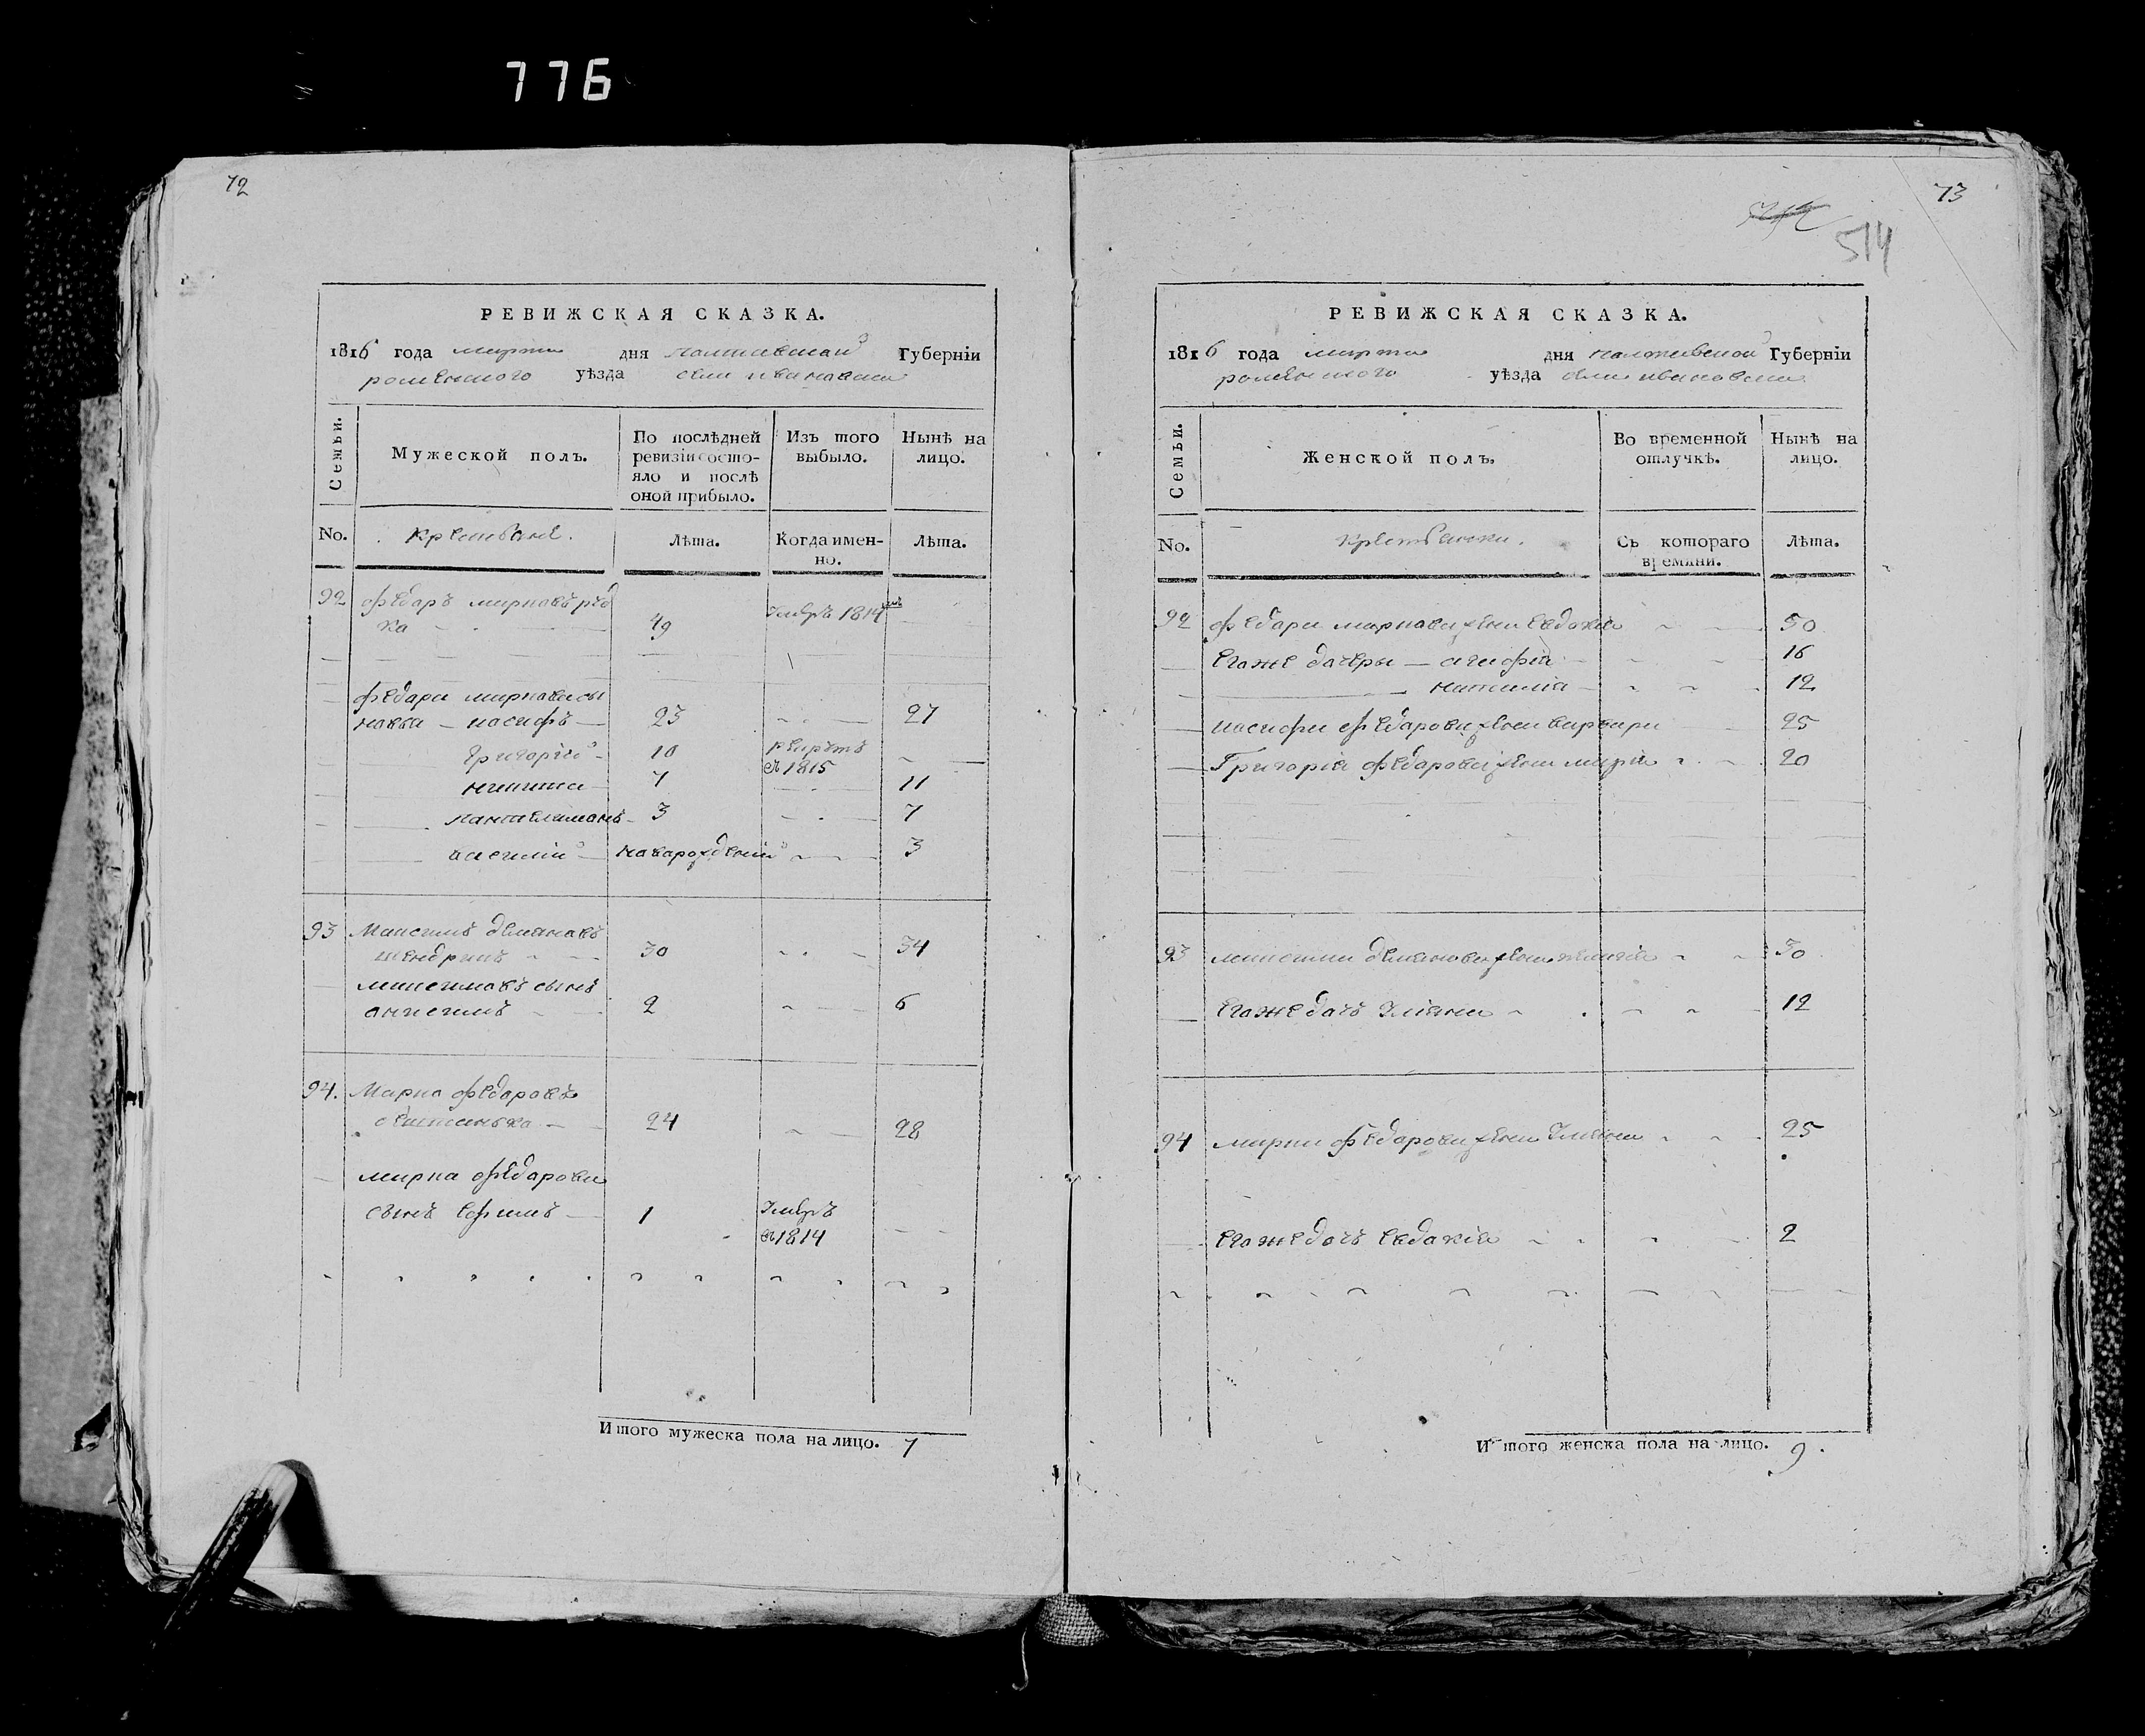 776
72
РЕВИЖСКАЯ СКАЗКА.
1816 года марта дня полтавской Губерніи
роменского уѣзда села ивановки
Семьи.
Мужеской полъ.
По послѣдней ревизіи состо-
яло и послѣ
оной прибыло.
Изъ того
выбыло.
Нынѣ на
лицо.
No. крестьяне.
Лѣта.
Когда имен-
но.
Лѣта.
92 федаръ марковъ
ка 49 Умеръ 1814
федара маркова сы
новья иосифъ 23 27
Григорій 10 рекрутъ
въ 1815
никита 7 11
пантелимонъ 3 7
василій новорожденій 3
93 Максимъ демяновъ
30 34
максимовъ сынъ
анисимъ 2 6
94. Марко федаровъ
24 28
марка федарова
сынъ ефимъ 1 Умеръ
въ 1814
Итого мужеска пола на лицо. 7
73
514
РЕВИЖСКАЯ СКАЗКА.
1816 года марта дня полтавской Губерніи
роменского уѣзда села ивановки
Семьи.
Женской полъ.
Во временной
отлучкѣ.
Нынѣ на
лицо.
No. крестьянки.
Съ котораго
времяни.
Лѣта.
92 федара маркова жена евдокія 50
егоже дочеры агафія 16
наталія 12
иосифа федарова жена варвара 25
Григорія федарова жена марія 20
93 максима демянова жена 30
егоже дочь Уліяна 12
94 марка федарова жена Уліяна 25
егоже дочь евдакія 2
Итого женска пола на лицо. 9.